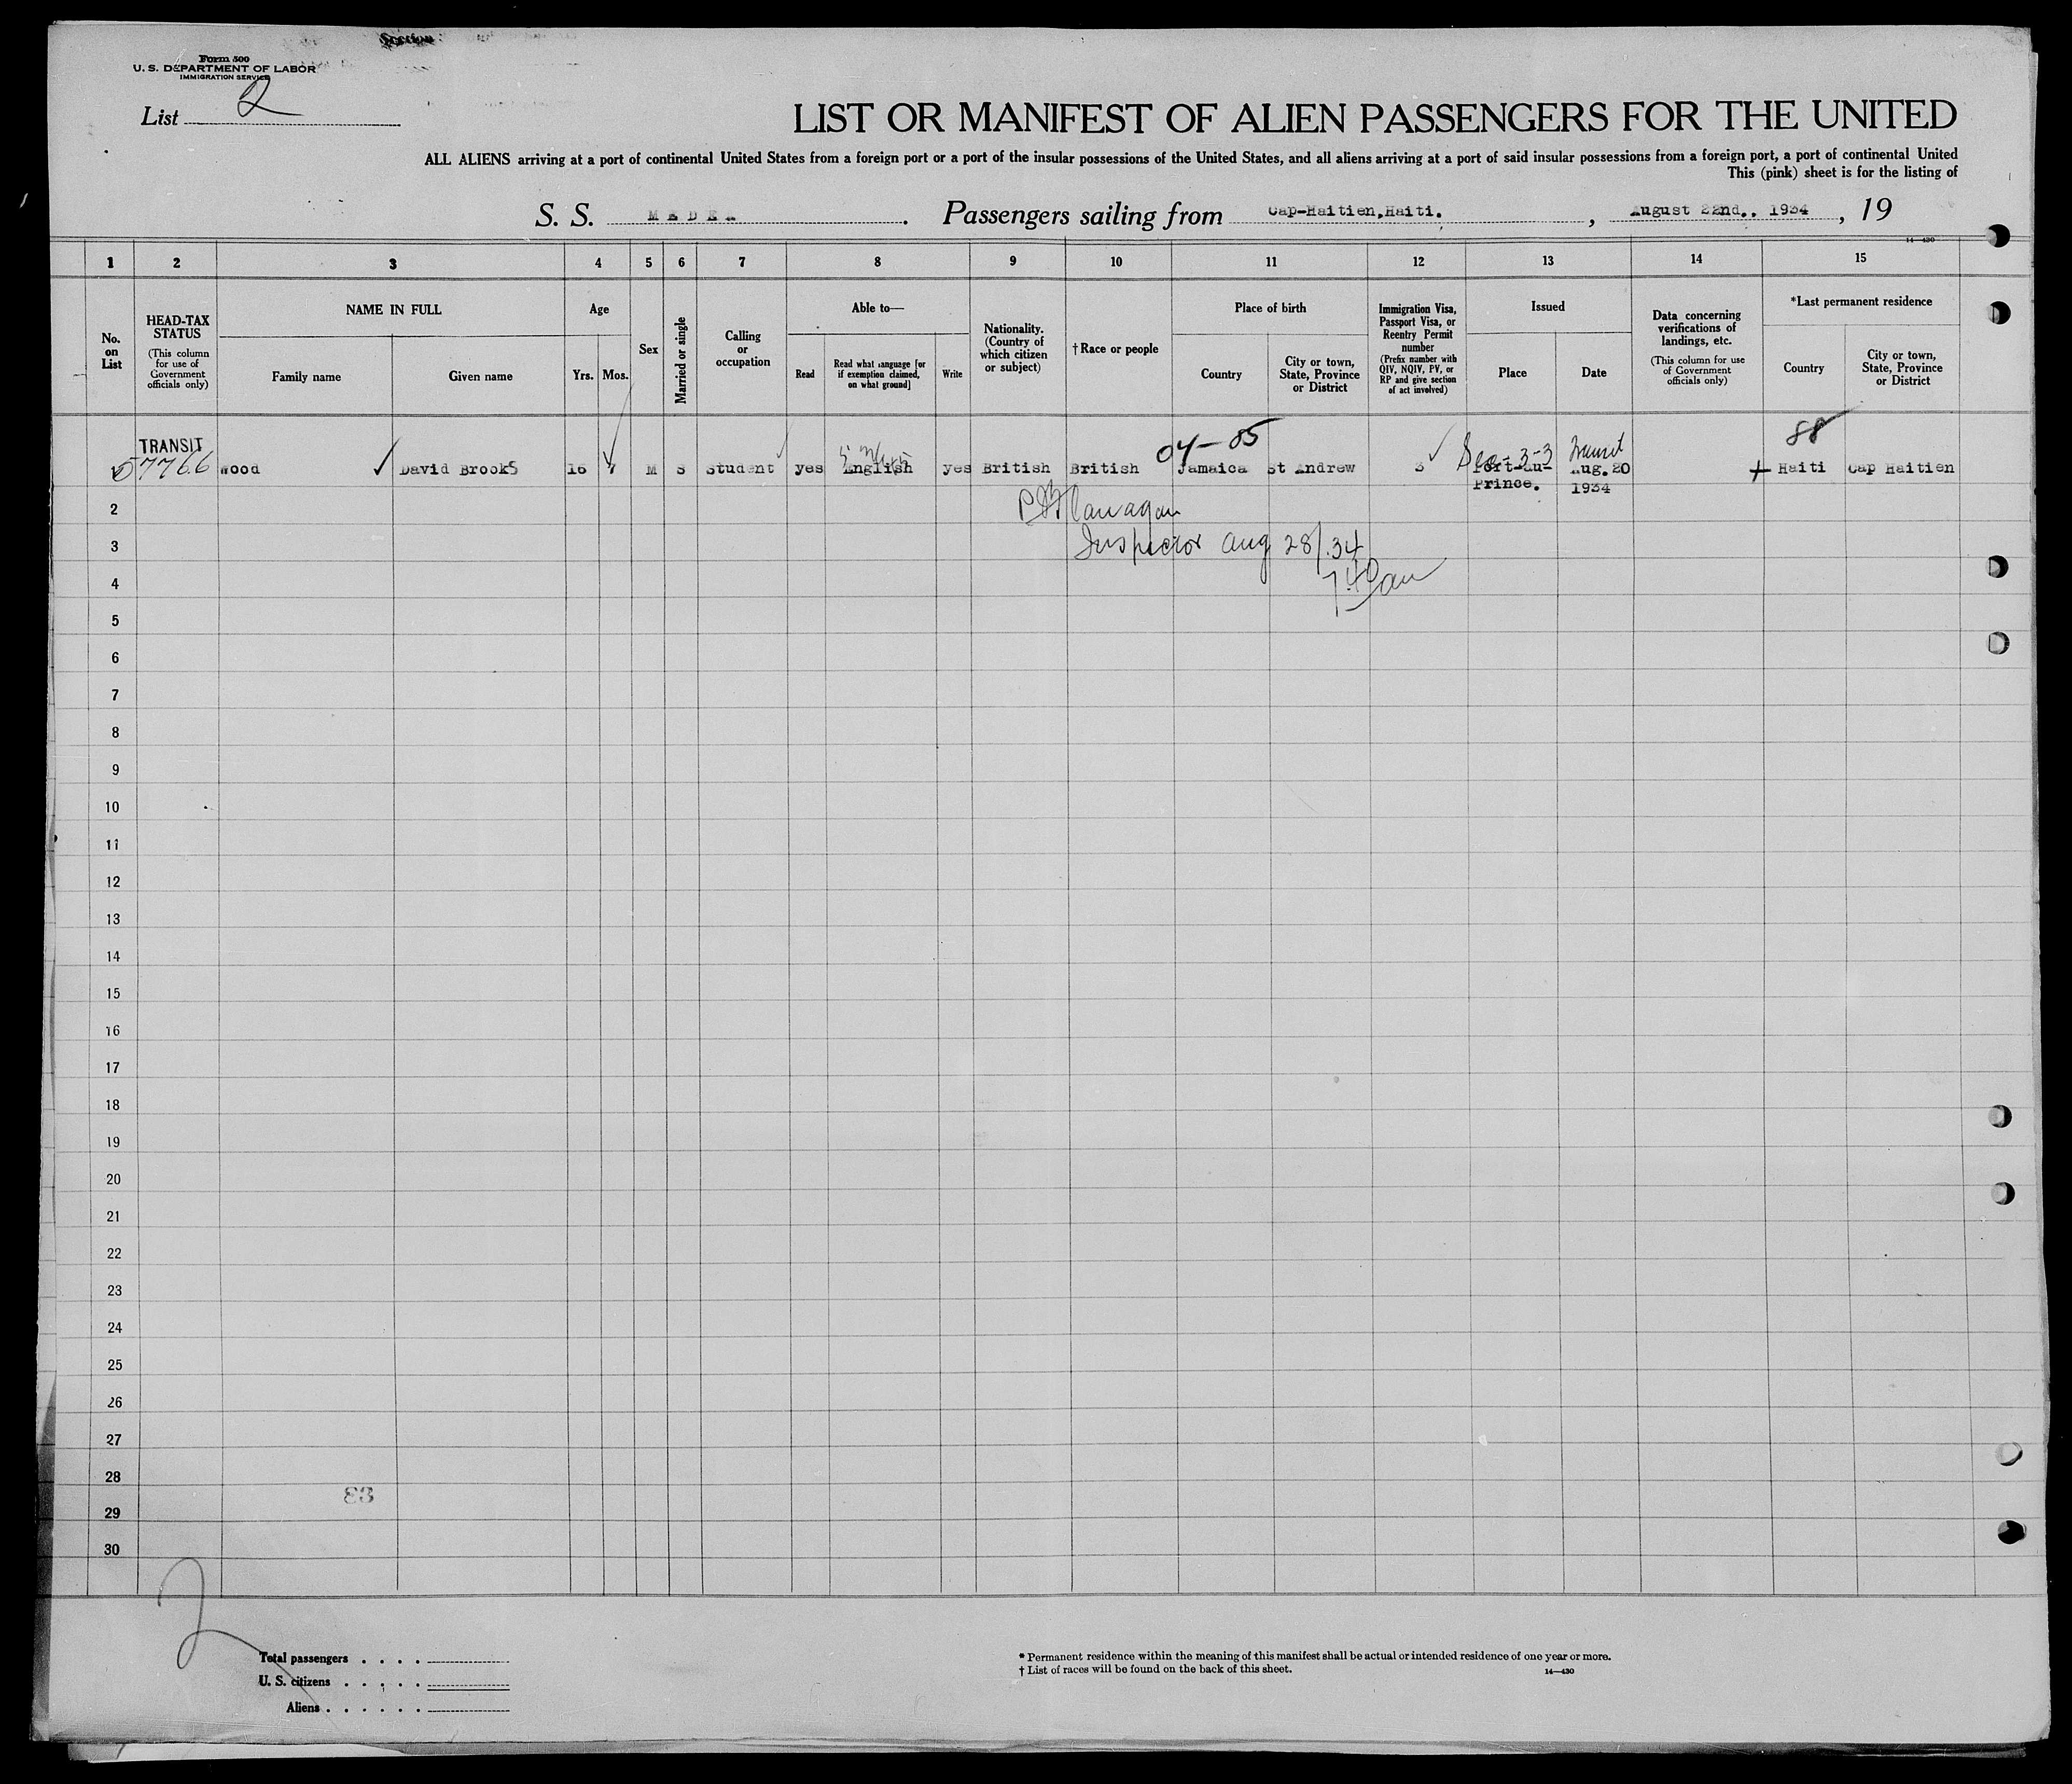 Form 500
U. S. DEPARTMENT OF LABOR
IMMIGRATION SERVICE
List 2
LIST OR MANIFEST OF ALIEN PASSENGERS FOR THE UNITED
ALL ALIENS arriving at a port of continental United States from a foreign port or a port of the insular possessions of the United States, and all aliens arriving at a port of said insular possessions from a foreign port, a port of continental United
This (pink) sheet is for the listing of
S. S. MEDEA. Passengers sailing from Cap-Haitien,Haiti. , August 22nd., 1934 , 19
14—430
1 2 3 4 5 6 7 8 9 10 11 12 13 14 15
No. on List
HEAD-TAX STATUS
(This column for use of Government officials only)
NAME IN FULL
Family name
Given name
Age
Yrs.
Mos.
Sex
Married or single
Calling or occupation
Able to—
Read
Read what language [or if exemption claimed, on what ground]
Write
Nationality. (Country of which citizen or subject)
†Race or people
Place of birth
Country
City or town, State, Province or District
Immigration Visa, Passport Visa, or Reentry Permit number
(Prefix number with QIV, NQIV, PV, or RP and give section of act involved)
Issued
Place
Date
Data concerning verifications of landings, etc.
(This column for use of Government officials only)
*Last permanent residence
Country
City or town, State, Province or District
TRANSIT 04-85 Sec-3-3 Transit 88
7766 Wood David Brooks 16 7 M S Student yes English yes British British Jamaica St Andrew 3 Port-au- Aug.20 Haiti Cap Haitien
Prince. 1934
2 Flanagan
3 Inspector Aug 28/.34
4 740am
5
6
7
8
9
10
11
12
13
14
15
16
17
18
19
20
21
22
23
24
25
26
27
28
29
30
2
Total passengers
U. S. citizens
Aliens
* Permanent residence within the meaning of this manifest shall be actual or intended residence of one year or more.
† List of races will be found on the back of this sheet.
14—430